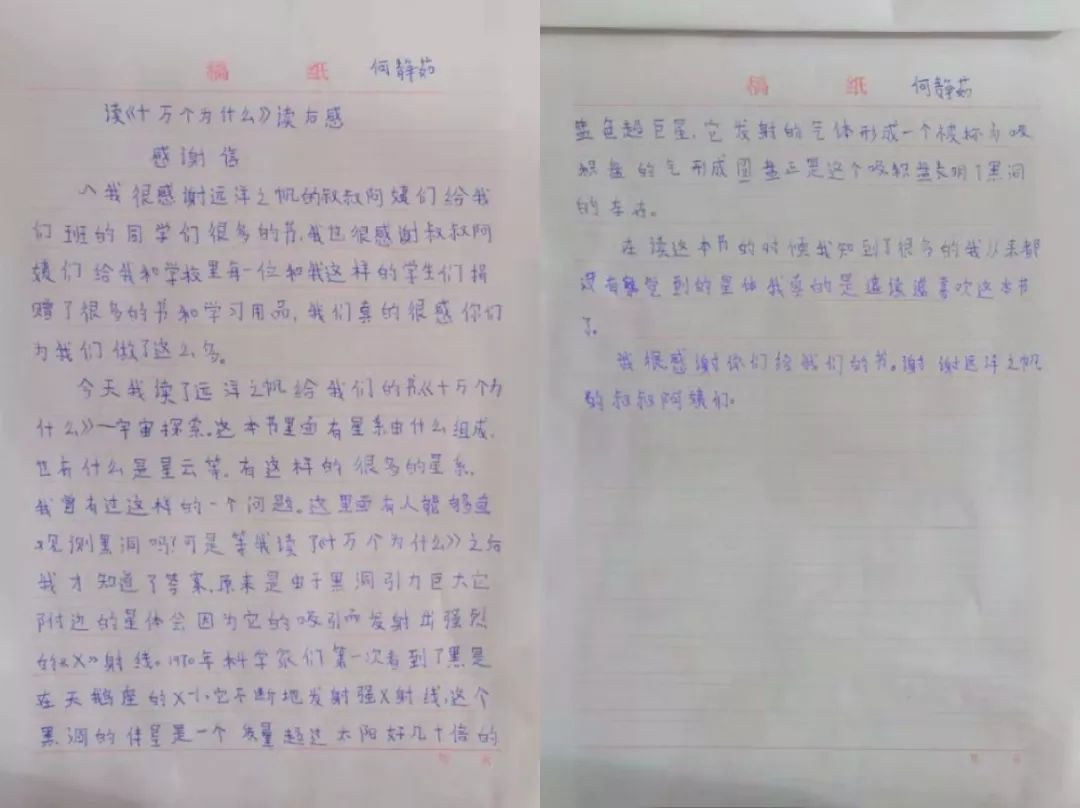 稿 纸 何静茹
读《十万个为什么》读右感
感谢信
我很感谢远洋之帆的叔叔阿姨们给我
们班的同学们很多的书,我也很感谢叔叔阿
姨们给我和学校里每一位和我这样的学生们捐
赠了很多的书和学习用品,我们真的很感你们
为我们做了这么多。
今天我读了远洋之帆给我们的书《十万个为
什么》一宇宙探索。这本书里面有星系由什么组成,
也有什么是星云等,有这样的很多的星系,
我曾有过这样的一个问题。这里面有人能够直
观测黑洞吗?可是等我读了《十万个为什么》之后
我才知道了答案,原来是由于黑洞引力巨大它
附近的星体会因为它的吸引而发射出强烈
的《X》射线。1970年科学家们第一次看到了黑是
在天鹅座的X-1,它不断地发射强X射线,这个
黑洞的伴星是一个质量超过太阳好几十倍的
稿 纸 何静茹
蓝色超巨星,它发射的气体形成一个被称为吸
积盘的气形成圆盘正是这个吸积盘表明了黑洞
的存在。
在读这本书的时候我知到了很多的我从来都
没有察觉到的星体我真的是造读造喜欢这本书
了。
我很感谢你们给我们的书。谢谢远洋之帆
的叔叔阿姨们。